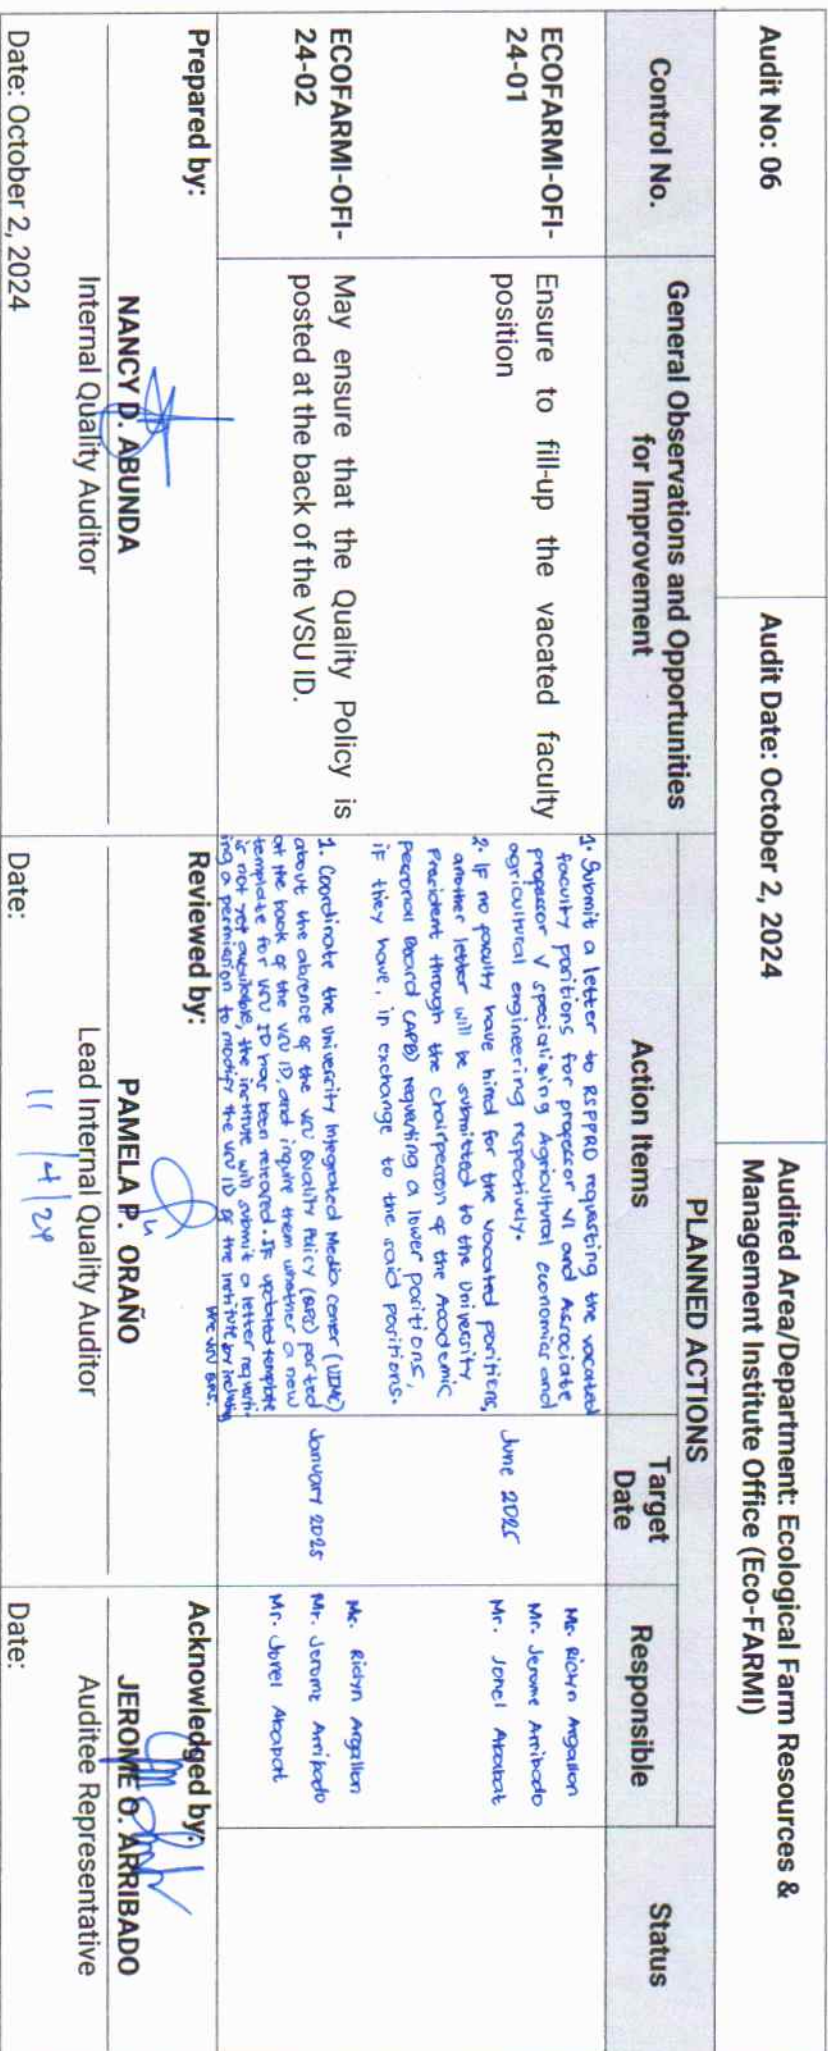 Audit No: 06
Audit Date: October 2, 2024
Audited Area/Department: Ecological Farm Resources &
Management Institute Office (Eco-FARMI)
Control No.
General Observations and Opportunities
for Improvement
PLANNED ACTIONS
Action Items
Target
Date
Responsible
Status
ECOFARMI-OFI-
24-01
Ensure to fill-up the vacated faculty
position
1. Submit a letter to RSPPRO requesting the vacated
faculty positions for professor VI and Associate
professor V specializing Agricultural economics and
agricultural engineering respectively.
2. If no faculty have hired for the vacated positions,
another letter will be submitted to the University
President through the chairperson of the Academic
Personal Board (APB) requesting a lower positions,
if they have, in exchange to the said positions.
June 2025
Ms. Richyn Argallon
Mr. Jerome Arribado
Mr. Jonel
ECOFARMI-OFI-
24-02
May ensure that the Quality Policy is
posted at the back of the VSU ID.
1. Coordinate the University Integrated Media Center (UIMC)
about the absence of the VSU Quality Policy posted
at the back of the VSU ID, and inquire them whether a new
template for VSU ID has been released. If updated template
is not yet available, the institute will submit a letter requesti-
ng a permission to modify the VSU ID of the institute by including
the VSU
January 2025
Ms. Richyn Argallon
Mr. Jerome Arribado
Mr. Jonel
Prepared by:
NANCY D. ABUNDA
Internal Quality Auditor
Date: October 2, 2024
Reviewed by:
PAMELA P. ORAÑO
Lead Internal Quality Auditor
11/4/24
Date:
Acknowledged by:
JEROME O. ARRIBADO
Auditee Representative
Date: